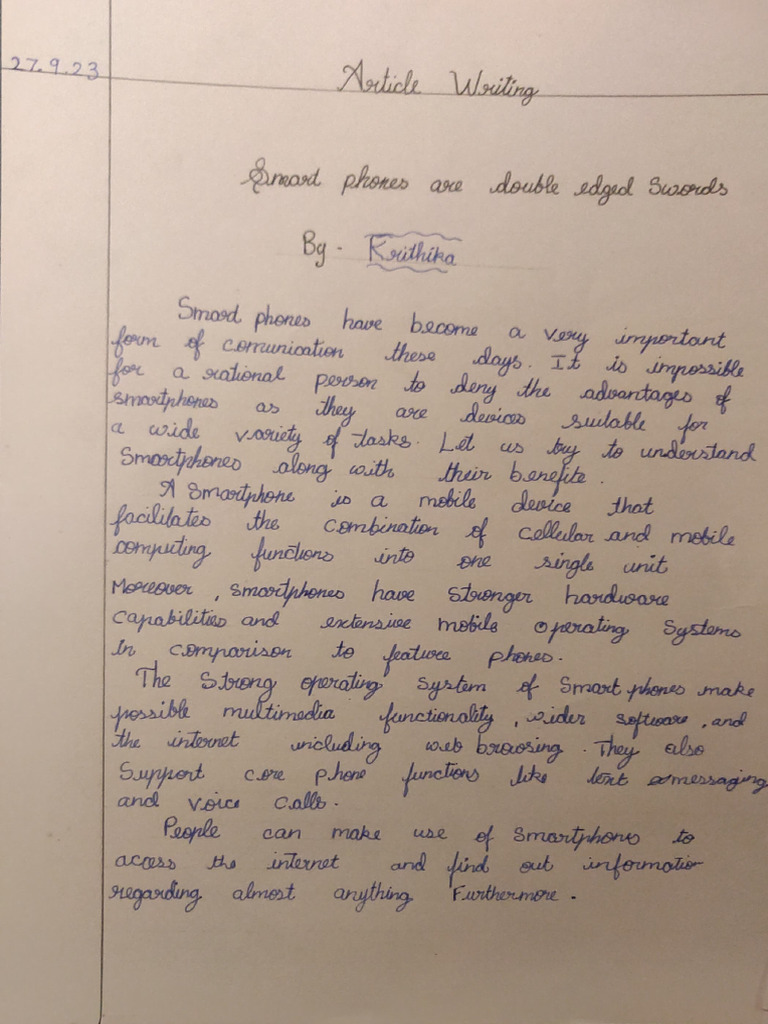 27.9.23
Article Writing
Smart phones are double edged Swords
By - Krithika
Smart phones have become a very important
form of comunication these days. It is impossible
for a rational person to deny the advantages of
smartphones as they are devices suitable for
a wide variety of tasks. Let us try to understand
Smartphones along with their benefits.
A Smartphone is a mobile device that
facilitates the combination of cellular and mobile
computing functions into one single unit
Moreover, smartphones have stronger hardware
capabilities and extensive mobile operating Systems
In comparison to feature phones.
The Strong operating system of Smart phones make
possible multimedia functionality, wider software, and
the internet including web browsing. They also
Support core phone functions like text messaging
and voice calls.
People can make use of Smartphones to
access the internet and find out information
regarding almost anything Furthermore.